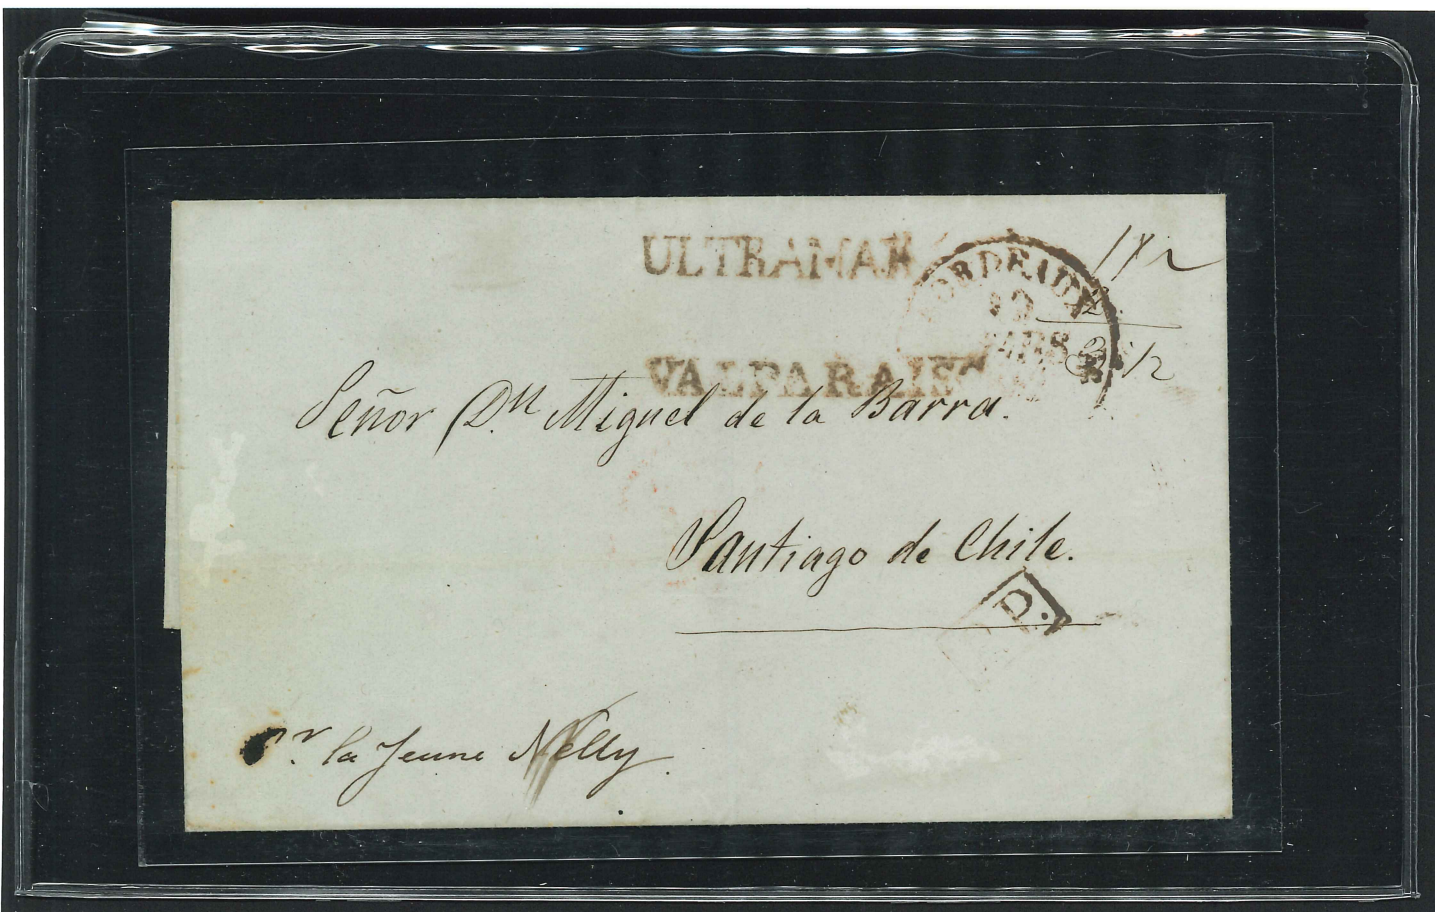 ULTRAMAR
BORDEAUX
VALPARAISO
Señor Dn Miguel de la Barra.
Santiago de Chile.
P.D.
Pr. la Jeune Nelly.